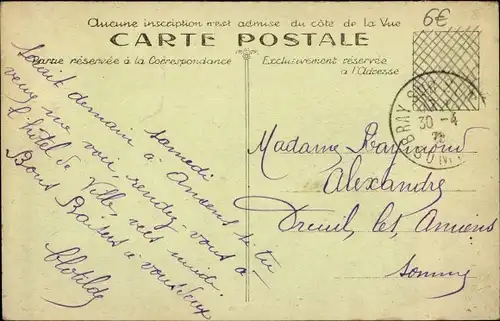 Aucune inscription n'est admise du côté de la Vue
6€
CARTE POSTALE
Partie réservée à la Correspondance
Exclusivement réservée
à l'Adresse
BRAY SUR
30 -4
SOMME
demain samedi
à Amiens si tu
veux me voir, rendez vous à
l'hôtel de Ville, vers midi.
Bons Baisers à vous deux
Clotilde
Madame Raymond
Alexandre
Dreuil les Amiens
Somme